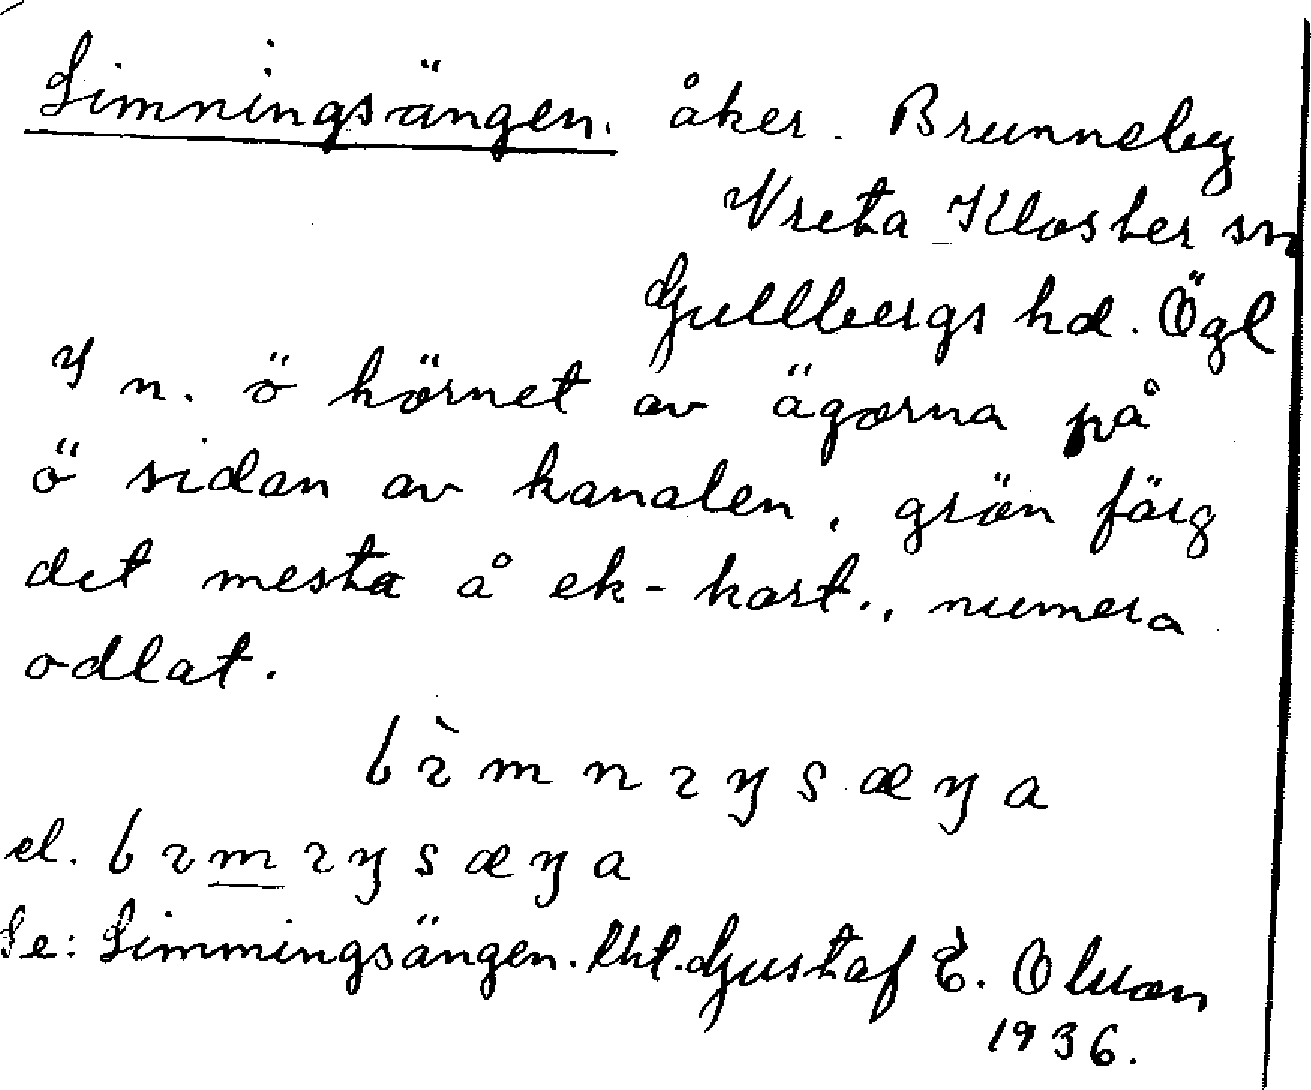 Limningsängen. åker. Brunneby
Vreta Kloster sn
Gullbergs hd. Ögl
I n. ö hörnet av ägorna på
ö sidan av kanalen, grön färg
det mesta å ek-kart., numera
odlat.
lɩ̀mnɩŋsæŋa
el. lɩm̲ɩŋsæŋa
Se: Limmingsängen. Gustaf E. Olson
1936.